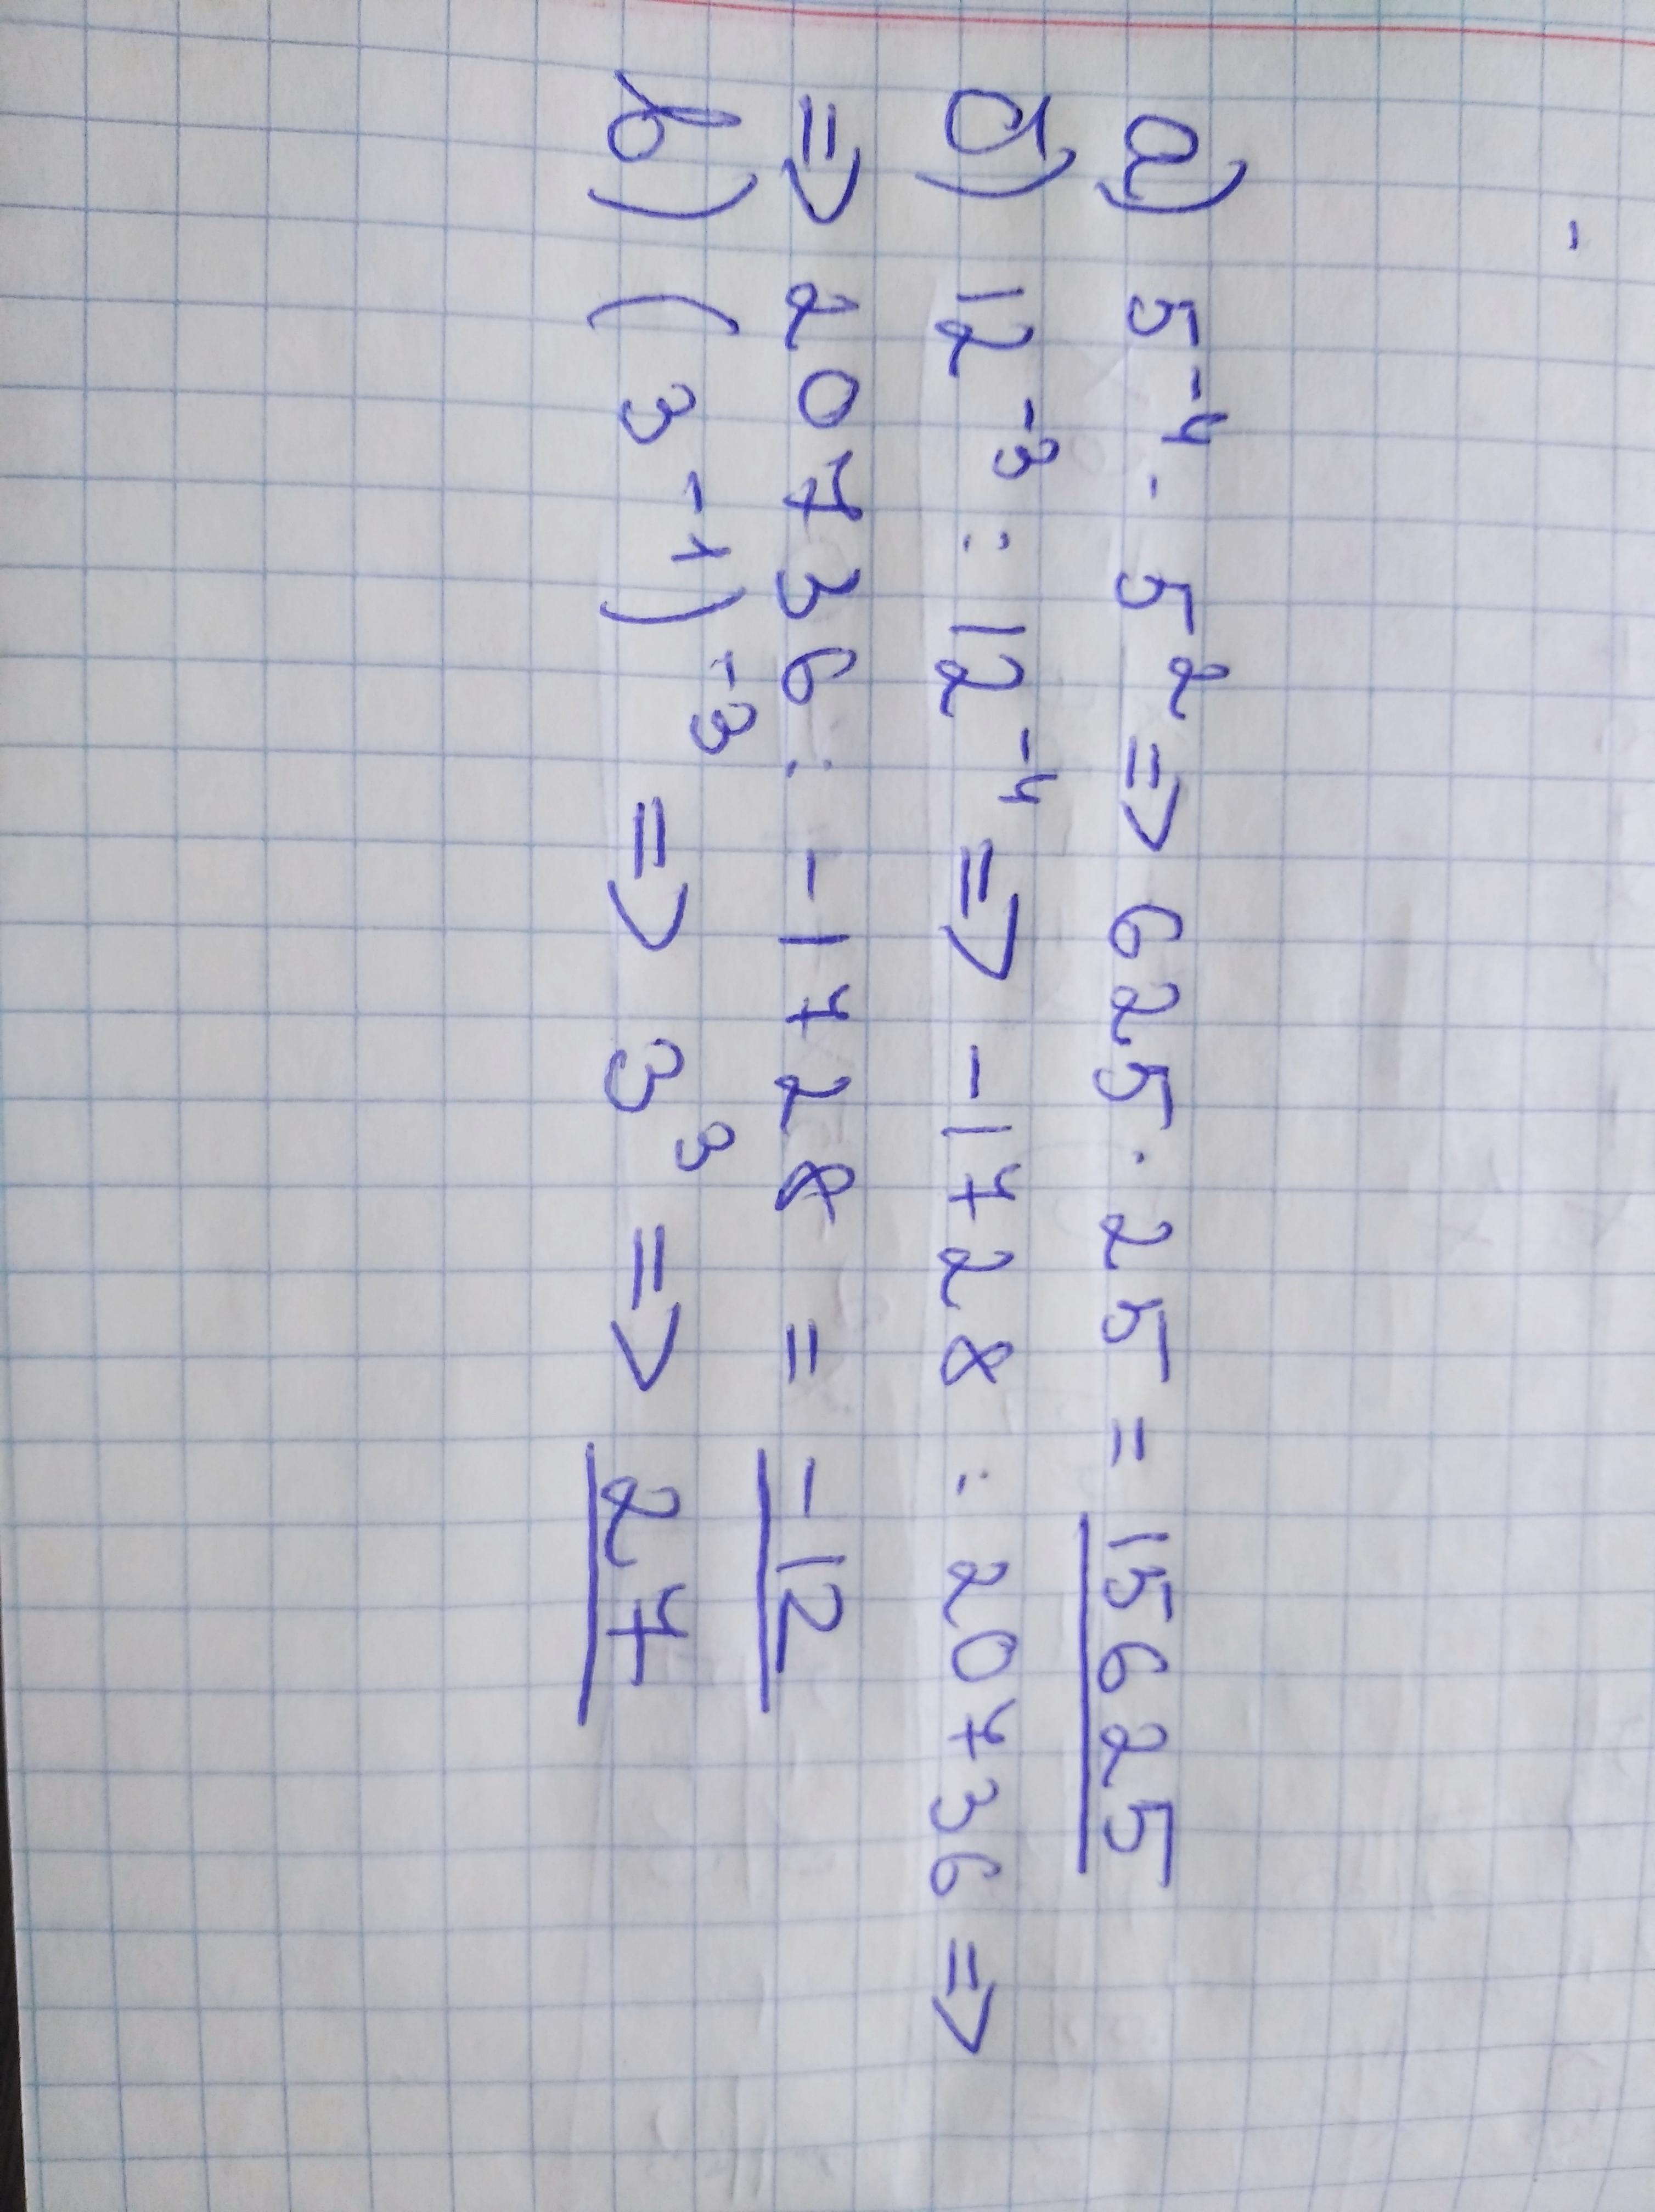 а) 5⁻⁴ · 5² => 625 · 25 = 15625
б) 12⁻³ : 12⁻⁴ => -1728 : 20736 =>
=> 20736 : -1728 = -12
в) (3⁻¹)⁻³ => 3³ => 27